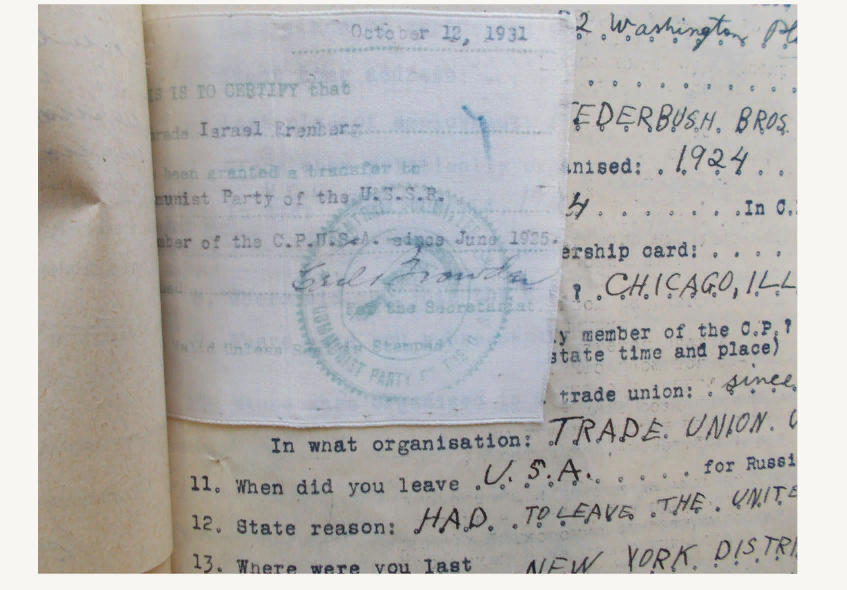 October 12, 1931
IS IS TO CERTIFY that
rade Israel Erenberg
been granted a transfer to
munist Party of the U.S.S.R.
ber of the C.P.U.S.A. since June 1925.
Earl Browder
For the Secretariat
Valid Unless Stamped
COMMUNIST PARTY OF THE U.S.
2 Washington Pl
EDERBUSH. BROS.
nised: 1924
4 In C.
ership card:
? CHICAGO, ILL
y member of the C.P.?
state time and place)
trade union: since
In what organisation: TRADE. UNION. U
11. When did you leave U.S.A. for Russi
12. State reason: HAD TO LEAVE THE UNITE
13. Where were you last NEW YORK DISTRI